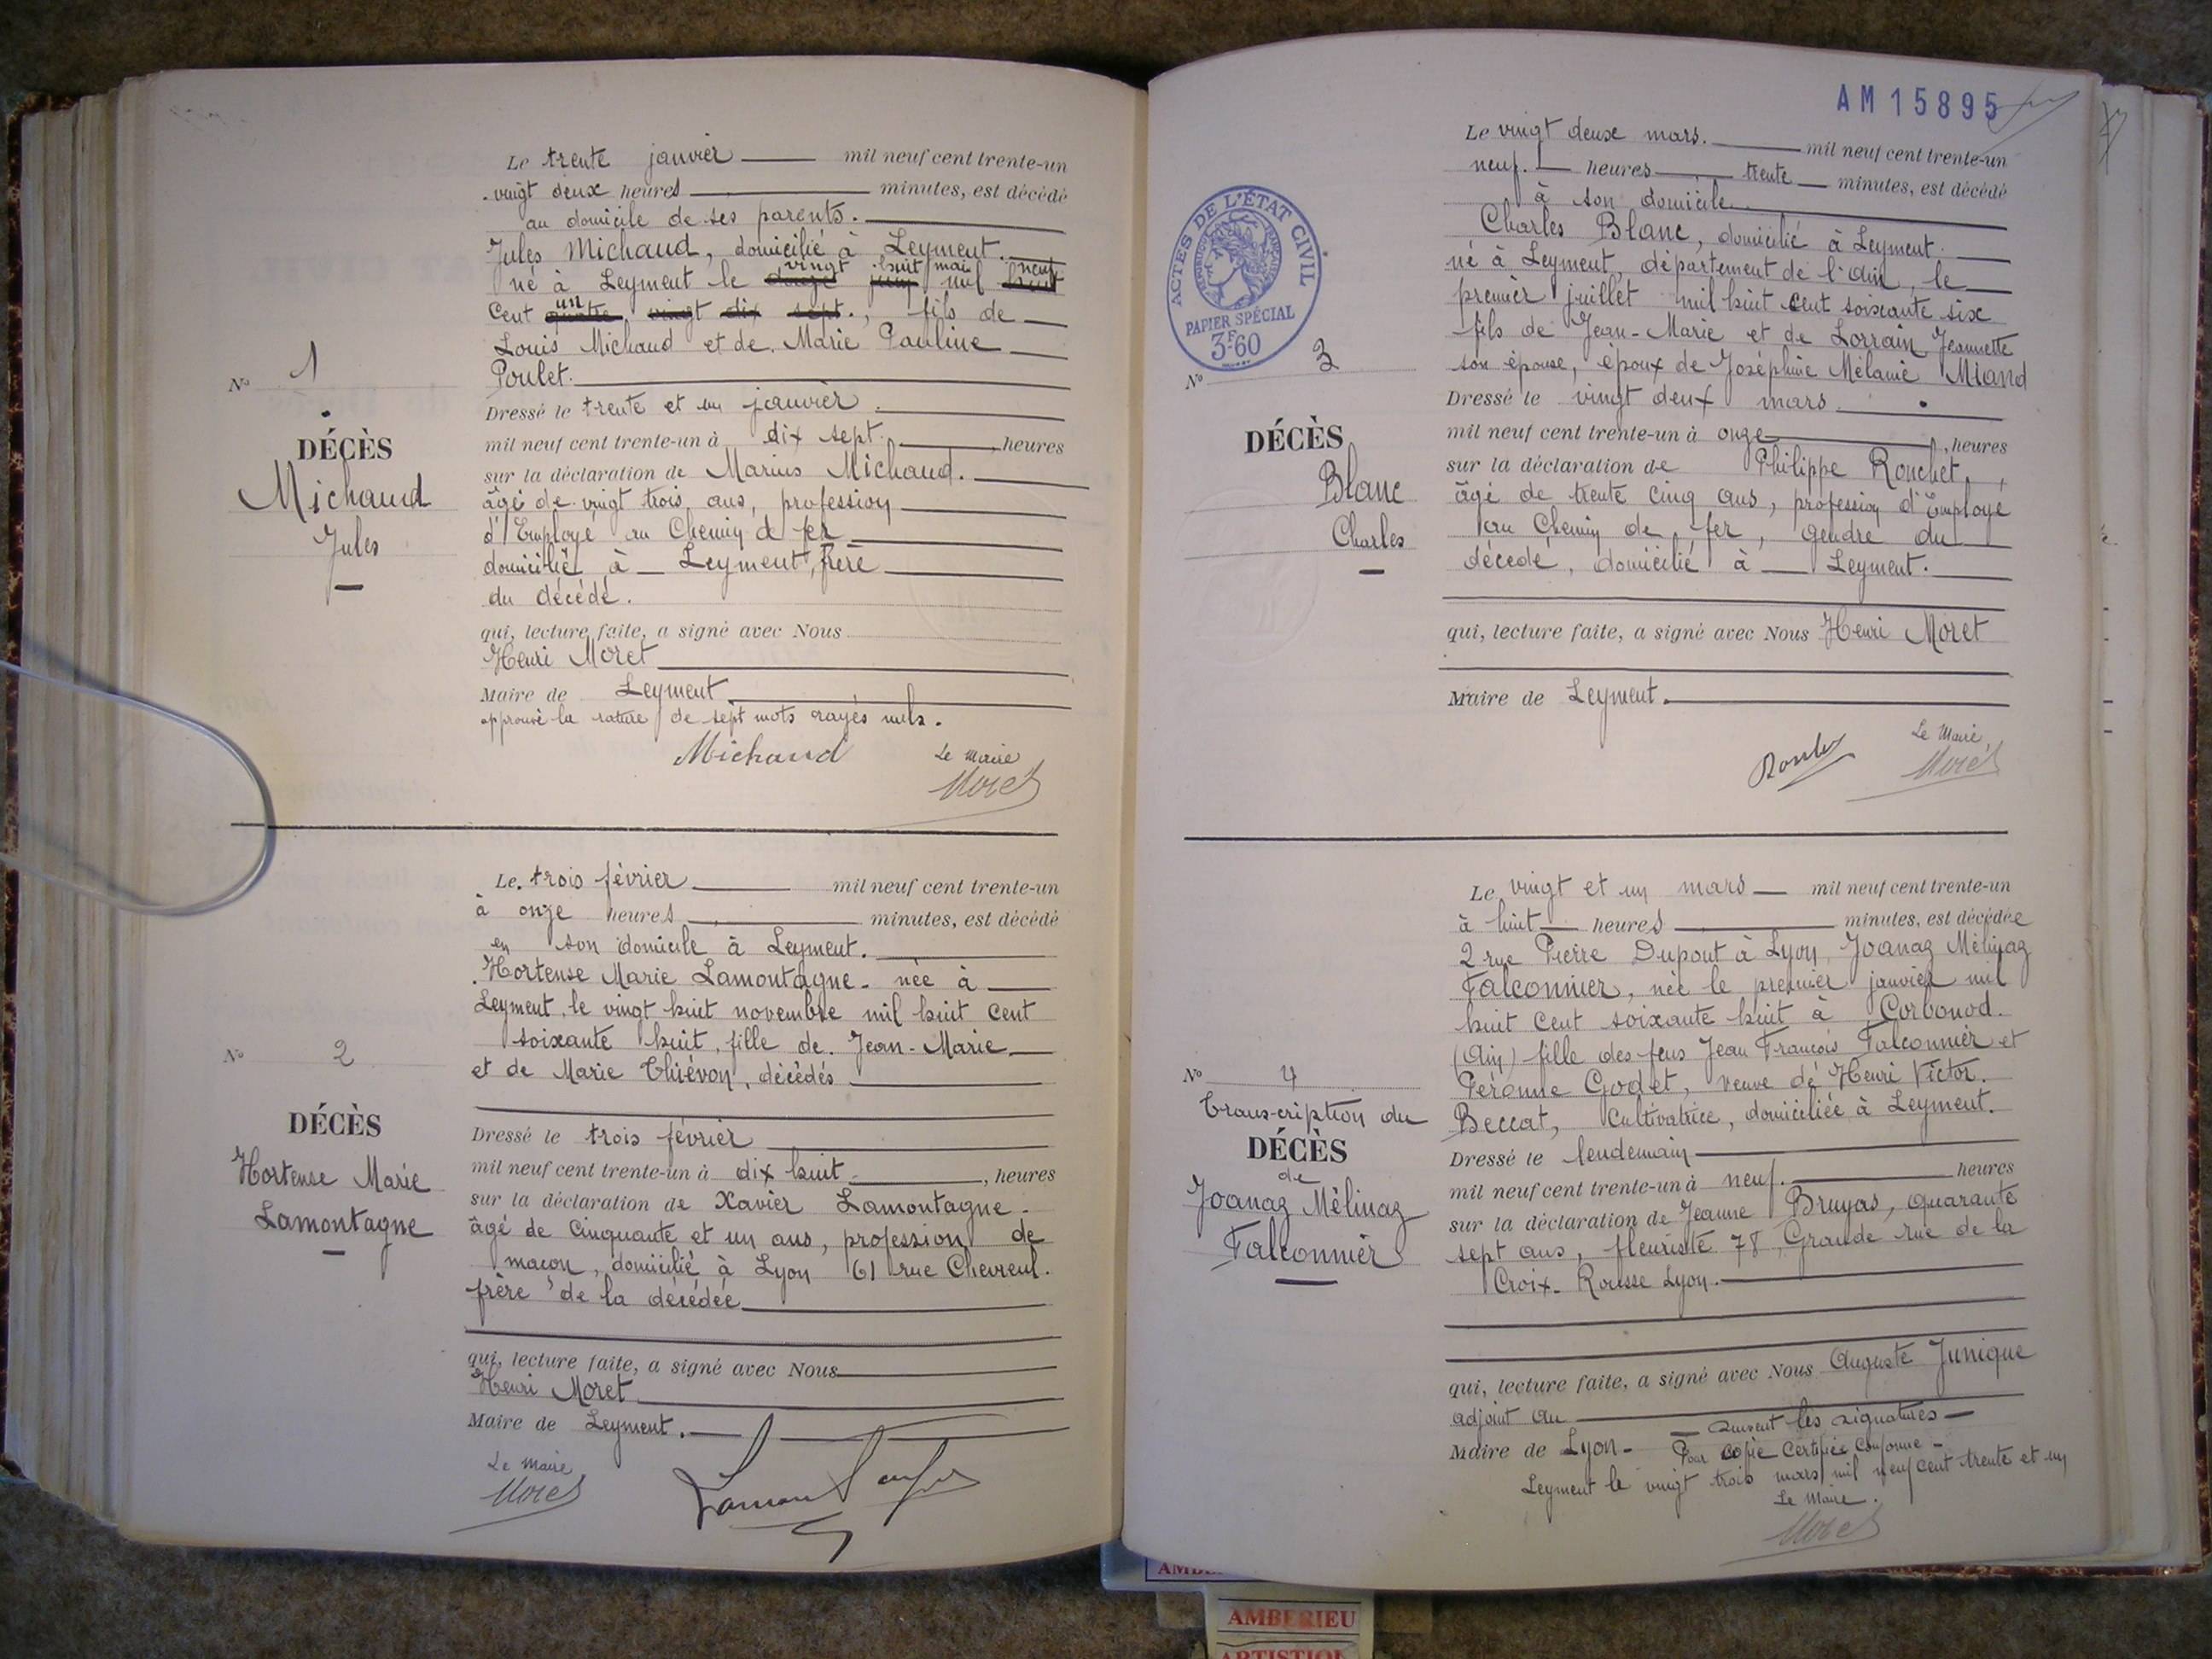 Le trente janvier mil neuf cent trente-un
vingt deux heures minutes, est décédé
au domicile de ses parents.
Jules Michaud, domicilié à Leyment.
vingt huit mai neuf
né à Leyment le douze juin mil huit
un
Cent quatre vingt dix sept, fils de
Louis Michaud et de Marie Pauline
Poulet.
N° 1
DÉCÈS
Michaud
Jules
Dressé le trente et un janvier.
mil neuf cent trente-un à dix sept, heures
sur la déclaration de Marius Michaud.
âgé de vingt trois ans, profession
d'Employé au Chemin de fer
domicilié à Leyment, frère
du décédé.
qui, lecture faite, a signé avec Nous
Henri Moret
Maire de Leyment
approuvé la rature de sept mots rayés nuls.
Michaud
Le Maire
Moret
Le trois février mil neuf cent trente-un
à onze heures minutes, est décédé
en son domicile à Leyment.
Hortense Marie Lamontagne - née à
Leyment, le vingt huit novembre mil huit cent
soixante huit, fille de Jean-Marie
et de Marie Thiévon, décédés
N° 2
DÉCÈS
Hortense Marie
Lamontagne
Dressé le trois février
mil neuf cent trente-un à dix huit, heures
sur la déclaration de Xavier Lamontagne.
âgé de Cinquante et un ans, profession de
maçon, domicilié à Lyon 61 rue Chevreul.
frère de la décédée
qui, lecture faite, a signé avec Nous
Henri Moret
Maire de Leyment.
Le Maire
Moret
Lamontagne
AM 15895
Le vingt deux mars. mil neuf cent trente-un
neuf. heures trente minutes, est décédé
à son domicile
Charles Blanc, domicilié à Leyment.
né à Leyment, département de l'Ain, le
premier juillet mil huit cent soixante six
fils de Jean-Marie et de Lorrain Jeannette
son épouse, époux de Joséphine Mélanie Miand
ACTES DE L'ÉTAT CIVIL
PAPIER SPÉCIAL
3F60
N° 3
DÉCÈS
Blanc
Charles
Dressé le vingt deux mars.
mil neuf cent trente-un à onze, heures
sur la déclaration de Philippe Ronchet,
âgé de trente cinq ans, profession d'Employé
au Chemin de fer, gendre du
décédé, domicilié à Leyment.
qui, lecture faite, a signé avec Nous Henri Moret
Maire de Leyment.
Le Maire,
Moret
Le vingt et un mars mil neuf cent trente-un
à huit heures minutes, est décédée
2 rue Pierre Dupont à Lyon, Joanaz Mélinaz
Falconnier, née le premier janvier mil
huit cent soixante huit à Corbonod.
(Ain) fille des feus Jean François Falconnier et
Péronne Godet, veuve de Henri Victor.
Beccat, Cultivatrice, domiciliée à Leyment.
N° 4
Transcription du
DÉCÈS
de
Joanaz Mélinaz
Falconnier
Dressé le lendemain
mil neuf cent trente-un à neuf. heures
sur la déclaration de Jeanne Bruyas, quarante
sept ans, fleuriste 78, Grande rue de la
Croix-Rousse Lyon.
qui, lecture faite, a signé avec Nous Auguste Junique
adjoint au
— Suivent les signatures —
Maire de Lyon - Pour copie Certifiée Conforme -
Leyment le vingt trois mars mil neuf cent trente et un
Le Maire.
Moret
AMBERIEU